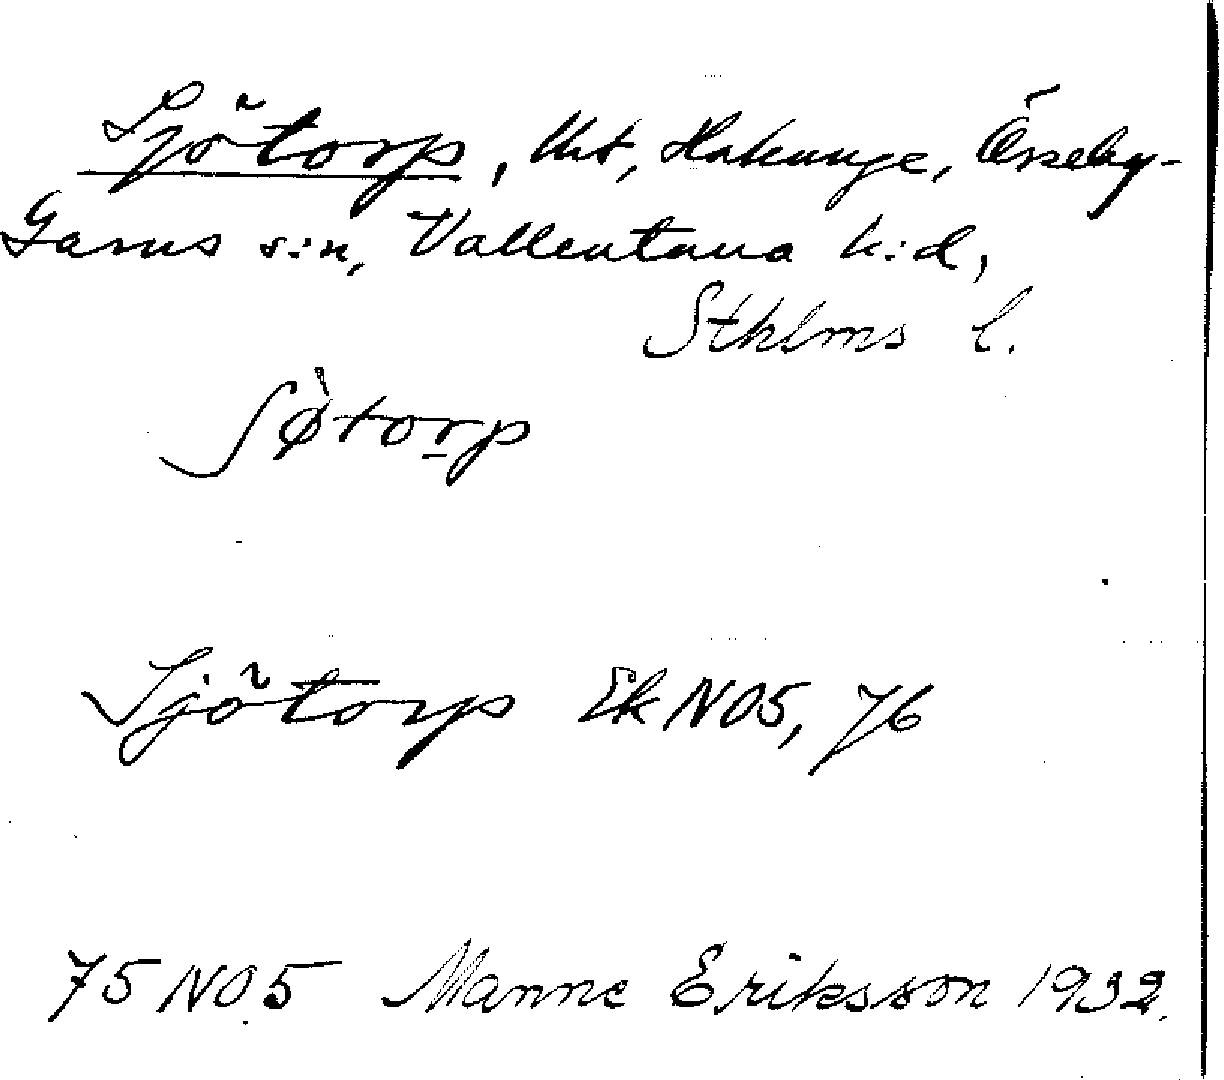 Sjötorp, lht, Hakunge, Össeby-
Garns s:n, Vallentuna h:d,
Sthlms l.
ʃø̀torp
Sjötorp Ek NO5, 76
75 NO5 Manne Eriksson 1932.